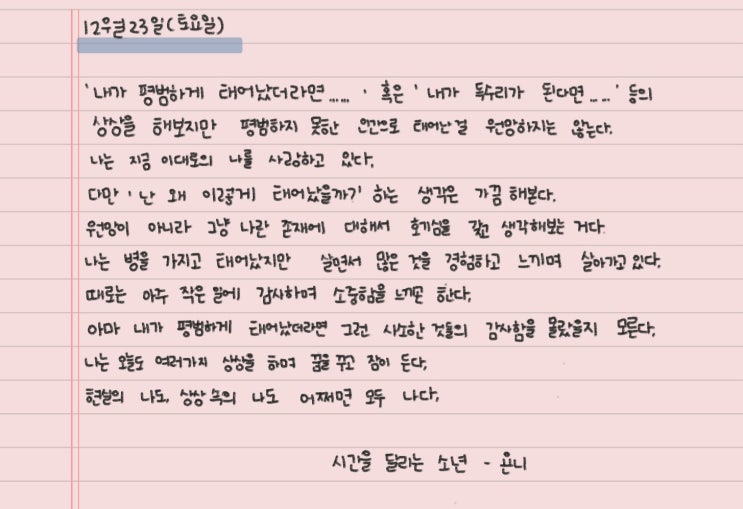 12월 23일 (토요일)
'내가 평범하게 태어났더라면......' 혹은 '내가 독수리가 된다면......' 등의
상상을 해보지만 평범하지 못한 인간으로 태어난 걸 원망하지는 않는다.
나는 지금 이대로의 나를 사랑하고 있다.
다만 '난 왜 이렇게 태어났을까?' 하는 생각은 가끔 해본다.
원망이 아니라 그냥 나란 존재에 대해서 호기심을 갖고 생각해보는 거다.
나는 병을 가지고 태어났지만 살면서 많은 것을 경험하고 느끼며 살아가고 있다.
때로는 아주 작은 일에 감사하며 소중함을 느끼곤 한다.
아마 내가 평범하게 태어났더라면 그런 사소한 것들의 감사함을 몰랐을지 모른다.
나는 오늘도 여러가지 상상을 하며 꿈을 꾸고 잠이 든다.
현실의 나도, 상상 속의 나도 어쩌면 모두 나다.
시간을 달리는 소년 - 욘니